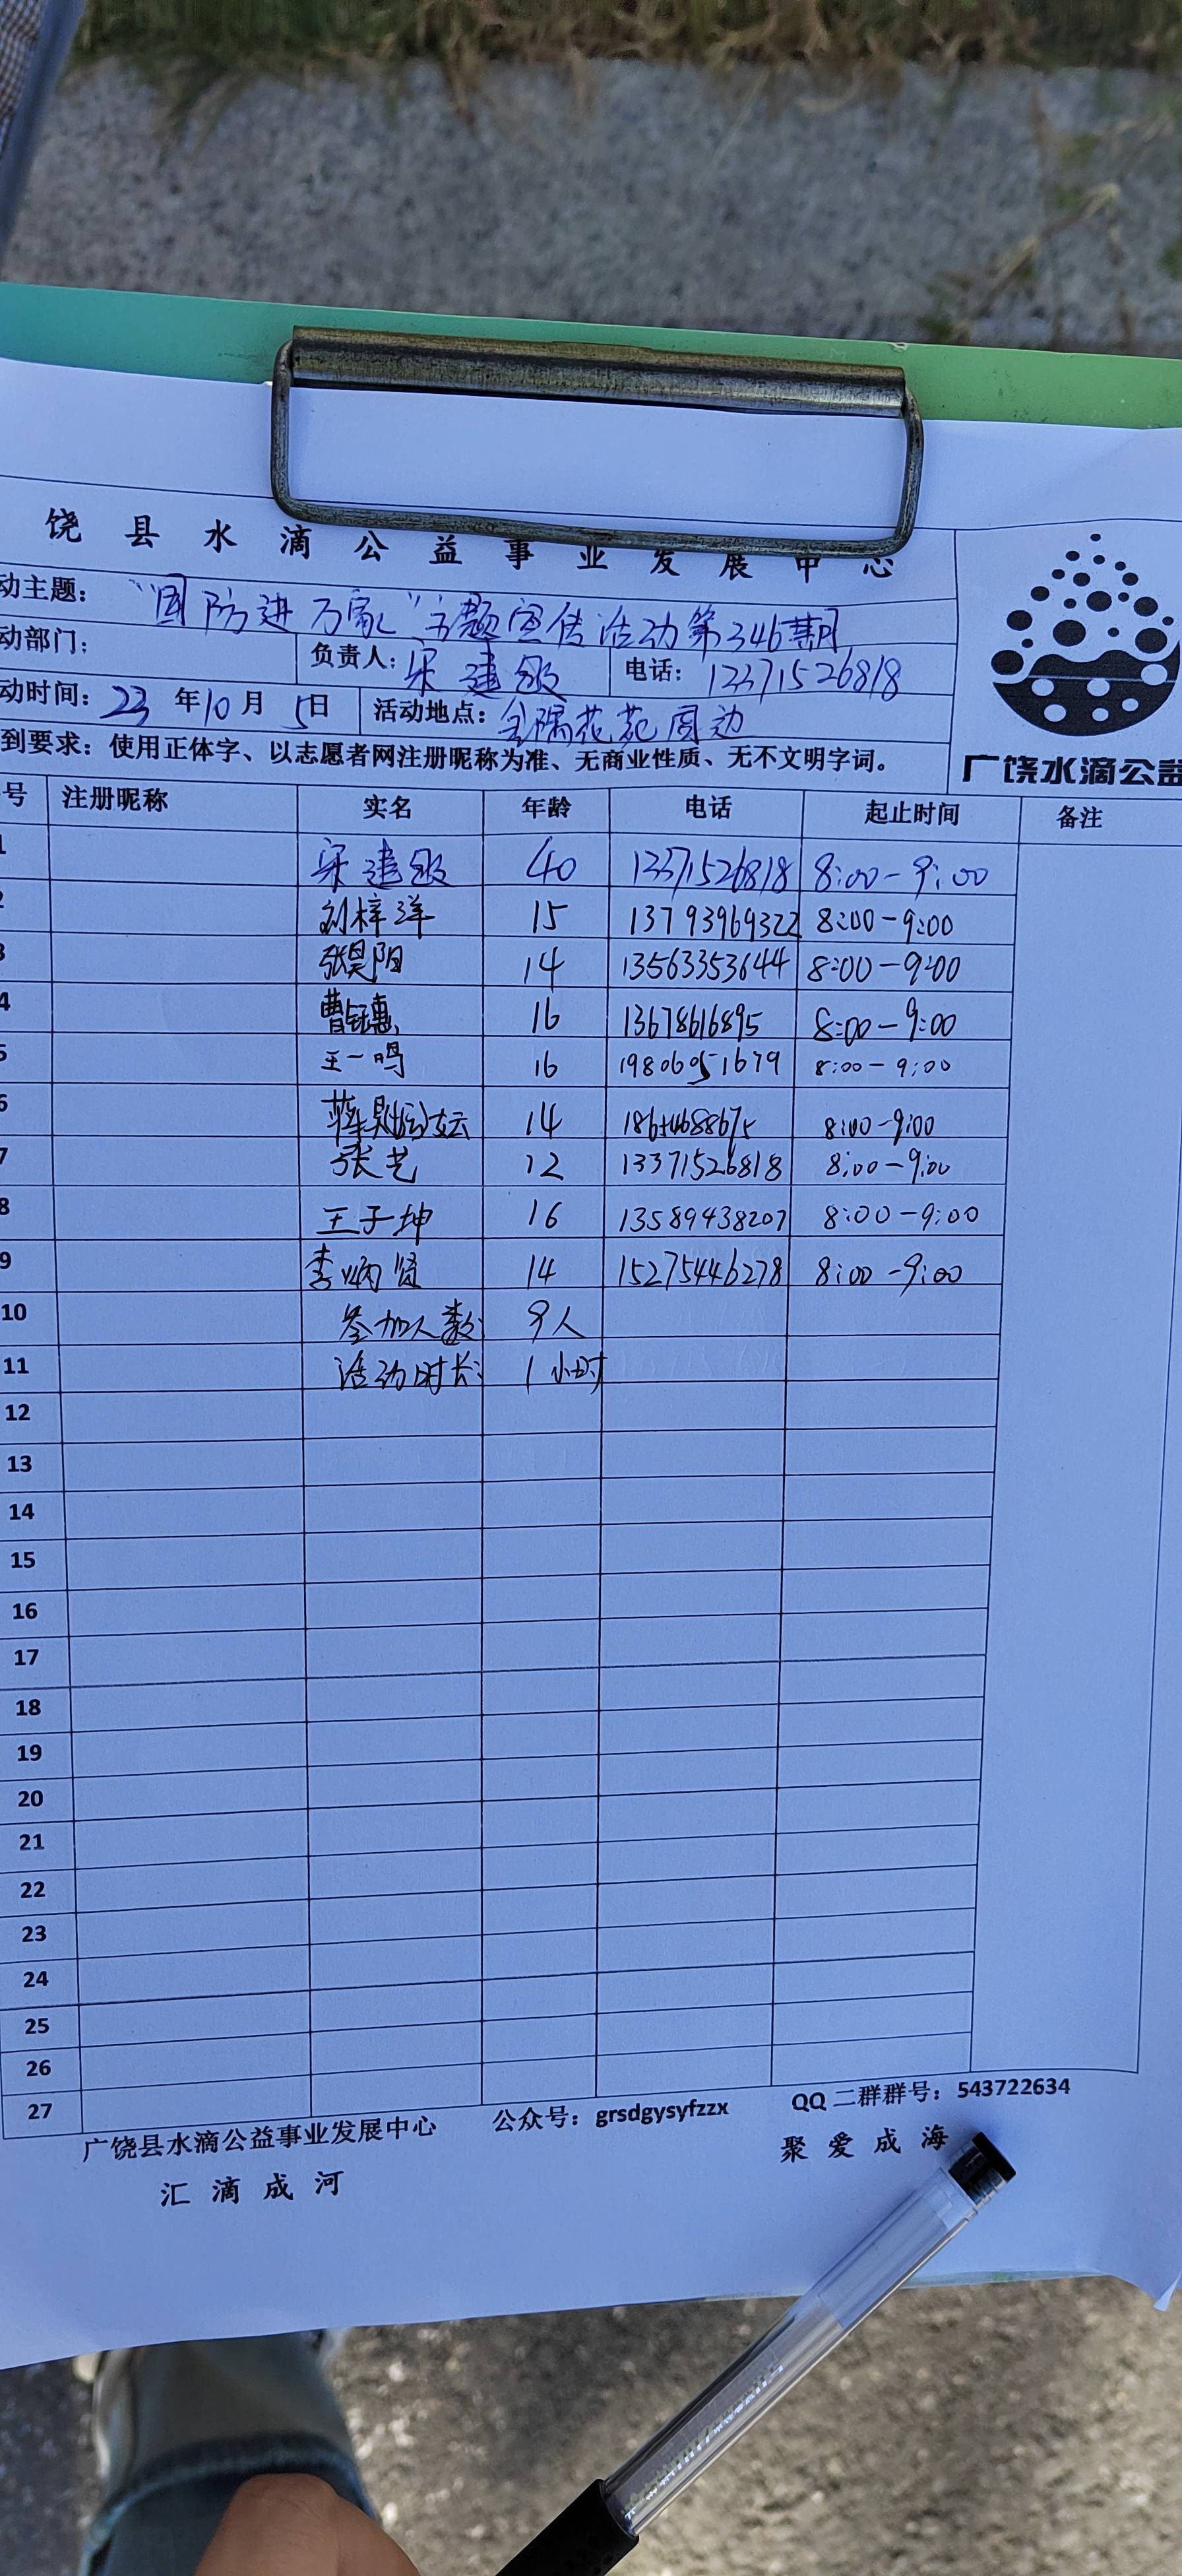 饶县水滴公益事业发展中心
动主题： “国防进万家”主题宣传活动第346期
动部门： 负责人：宋建 电话：13371526818
动时间：23年10月5日 活动地点：花苑周边
到要求：使用正体字、以志愿者网注册昵称为准、无商业性质、无不文明字词。
广饶水滴公益
号 注册昵称 实名 年龄 电话 起止时间 备注
1 宋建 40 13371526818 8:00-9:00
2 刘梓洋 15 13793969322 8:00-9:00
3 张昊阳 14 13563353644 8:00-9:00
4 曹 16 13678616895 8:00-9:00
5 王一鸣 16 19806051679 8:00-9:00
6 14 18654688675 8:00-9:00
7 张艺 12 13371526818 8:00-9:00
8 王子坤 16 13589438207 8:00-9:00
9 李炳贤 14 15275446278 8:00-9:00
10 参加人数: 9人
11 活动时长: 1小时
12
13
14
15
16
17
18
19
20
21
22
23
24
25
26
27
广饶县水滴公益事业发展中心 公众号：grsdgysyfzzx QQ 二群群号：543722634
汇滴成河 聚爱成海